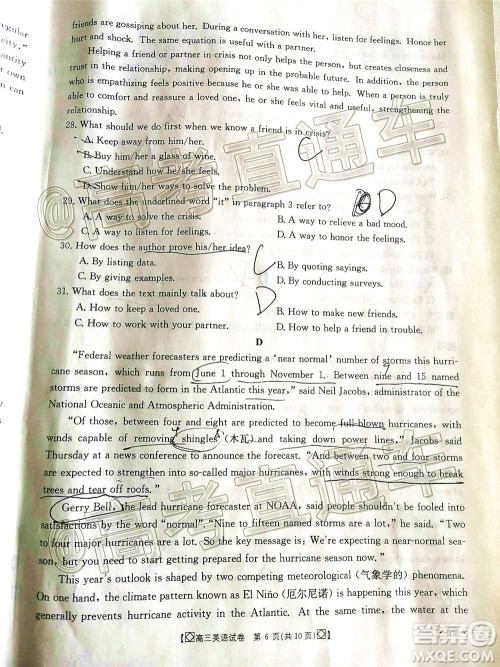 friends are gossiping about her. During a conversation with her, listen for feelings. Honor her
hurt and shock. The same equation is useful with a partner.
Helping a friend or partner in crisis not only helps the person, but creates closeness and
trust in the relationship, making opening up in the probable future. In addition, the person
who is empathizing feels positive because he or she was able to help. When a person is truly
able to comfort and reassure a loved one, he or she feels useful, strengthening the
relationship.
28. What should we do first when we know a friend is in crisis?
A. Keep away from him/her.
B. Buy him/her a glass of wine.
C. Understand how he/she feels.
D. Show him/her ways to solve the problem.
C
29. What does the underlined word "it" in paragraph 3 refer to?
D
A. A way to solve the crisis. B. A way to relieve a bad mood.
C. A way to listen for feelings. D. A way to honor the feelings.
30. How does the author prove his/her idea?
C
A. By listing data. B. By quoting sayings.
C. By giving examples. D. By conducting surveys.
31. What does the text mainly talk about?
D
A. How to keep a loved one. B. How to make new friends.
C. How to work with your partner. D. How to help a friend in trouble.
D
"Federal weather forecasters are predicting a 'near normal' number of storms this hurri-
cane season, which runs from June 1 through November 1. Between nine and 15 named
storms are predicted to form in the Atlantic this year," said Neil Jacobs, administrator of the
National Oceanic and Atmospheric Administration.
"Of those, between four and eight are predicted to become full-blown hurricanes, with
winds capable of removing shingles (木瓦) and taking down power lines," Jacobs said
Thursday at a news conference to announce the forecast. "And between two and four storms
are expected to strengthen into so-called major hurricanes, with winds strong enough to break
trees and tear off roofs."
Gerry Bell, the lead hurricane forecaster at NOAA, said people shouldn't be fooled into
satisfactions by the word "normal". "Nine to fifteen named storms are a lot," he said. "Two
to four major hurricanes are a lot. So the key message is; We're expecting a near-normal
season, but you need to start getting prepared for the hurricane season now."
This year's outlook is shaped by two competing meteorological (气象学的) phenomena.
On one hand, the climate pattern known as El Niño (厄尔尼诺) will likely continue, which
prevents hurricane activity in the Atlantic. At the same time, warmer water at the
【高三英语试卷 第 6 页(共 10 页)】
高考直通车
高考直通车
答案圈
MXQE.COM